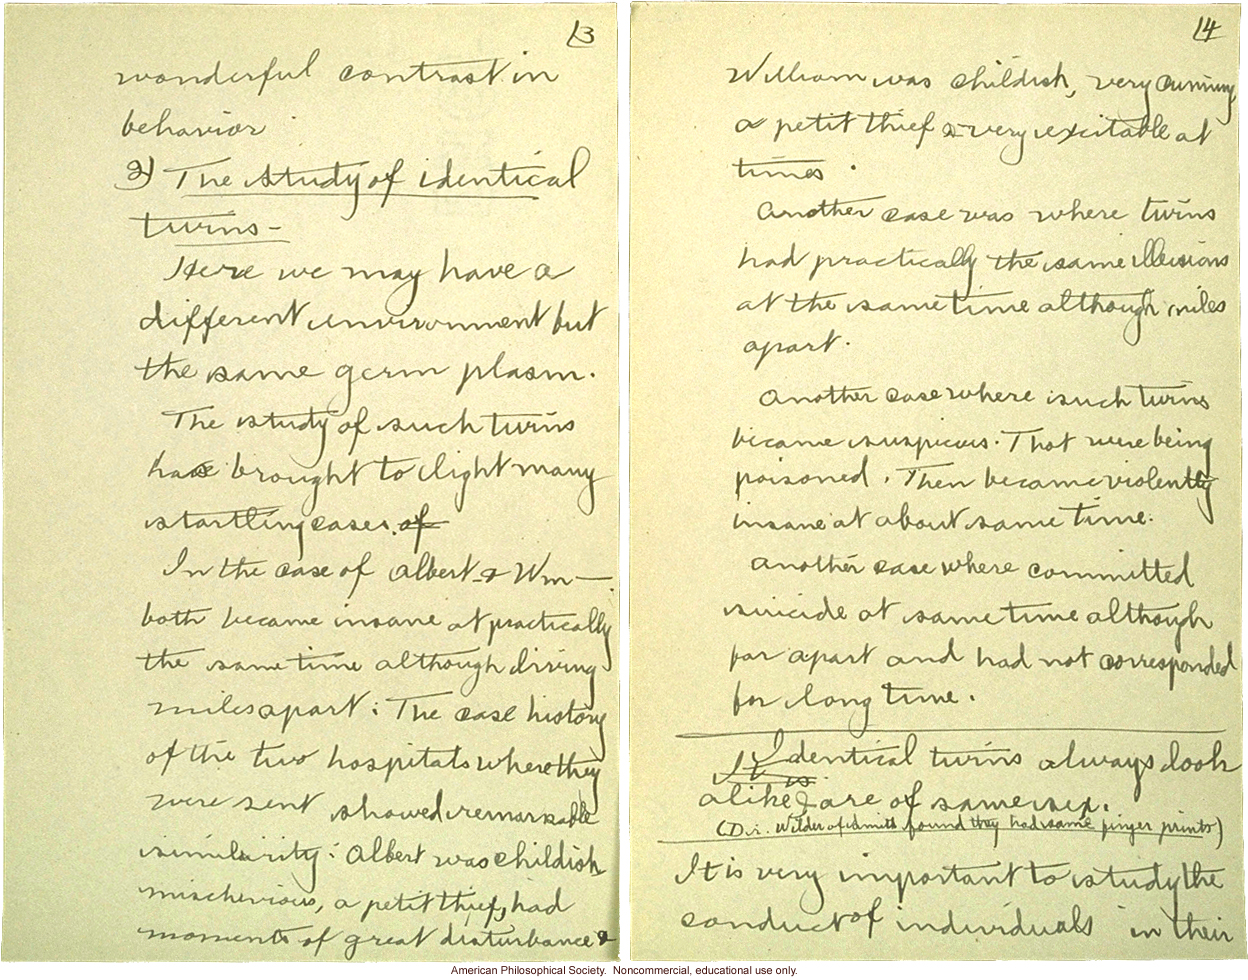 13
wonderful contrast in
behavior
2) The study of identical
twins -
Here we may have a
different environment but
the same germ plasm.
The study of such twins
have brought to light many
startling cases. of
In the case of Albert & Wm —
both became insane at practically
the same time although living
miles apart. The case history
of the two hospitals where they
were sent showed remarkable
similarity: Albert was childish
mischevious, a petit thief, had
moments of great disturbance &
14
William was childish, very cunning,
a petit thief & very excitable at
times.
Another case was where twins
had practically the same illusions
at the same time although miles
apart.
Another case where such twins
became suspicious. That were being
poisoned. Then became violently
insane at about same time.
Another case where committed
suicide at same time although
far apart and had not corresponded
for long time.
It is Identical twins always look
alike & are of same sex.
(Dr. Wilder of Smith found they had same finger prints)
It is very important to study the
conduct of individuals in their
American Philosophical Society. Noncommercial, educational use only.